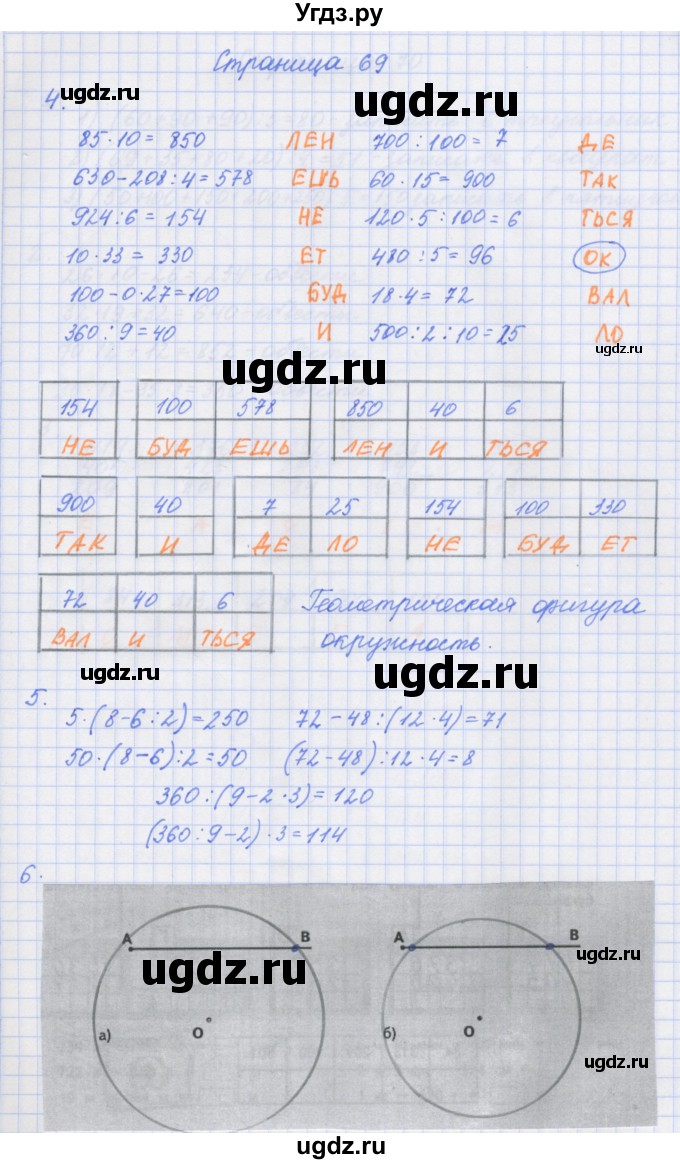 Угдз.ру
Страница 69
4.
ugdz.ru ugdz.ru
85·10 = 850 ЛЕН 700:100 = 7 ДЕ
630-208:4=578 ЕШЬ 60·15=900 ТАК
924:6=154 НЕ 120·5:100=6 ТЬСЯ
10·33 = 330 ЕТ 480:5=96 ОК
100-0·27=100 БУД 18·4=72 ВАЛ
360:9=40 И 500:2:10=25 ЛО
ugdz.ru ugdz.ru
154 100 578 850 40 6
НЕ БУД ЕШЬ ЛЕН И ТЬСЯ
900 40 7 25 154 100 330
ТАК И ДЕ ЛО НЕ БУД ЕТ
72 40 6 Геометрическая фигура
ВАЛ И ТЬСЯ окружность.
ugdz.ru ugdz.ru
5.
5·(8-6:2)=250 72-48:(12·4)=71
50·(8-6):2=50 (72-48):12·4=8
360:(9-2·3)=120
(360:9-2)·3=114
6.
А В А В
ugdz.ru ugdz.ru
а) О б) О
ugdz.ru ugdz.ru
ugdz.ru